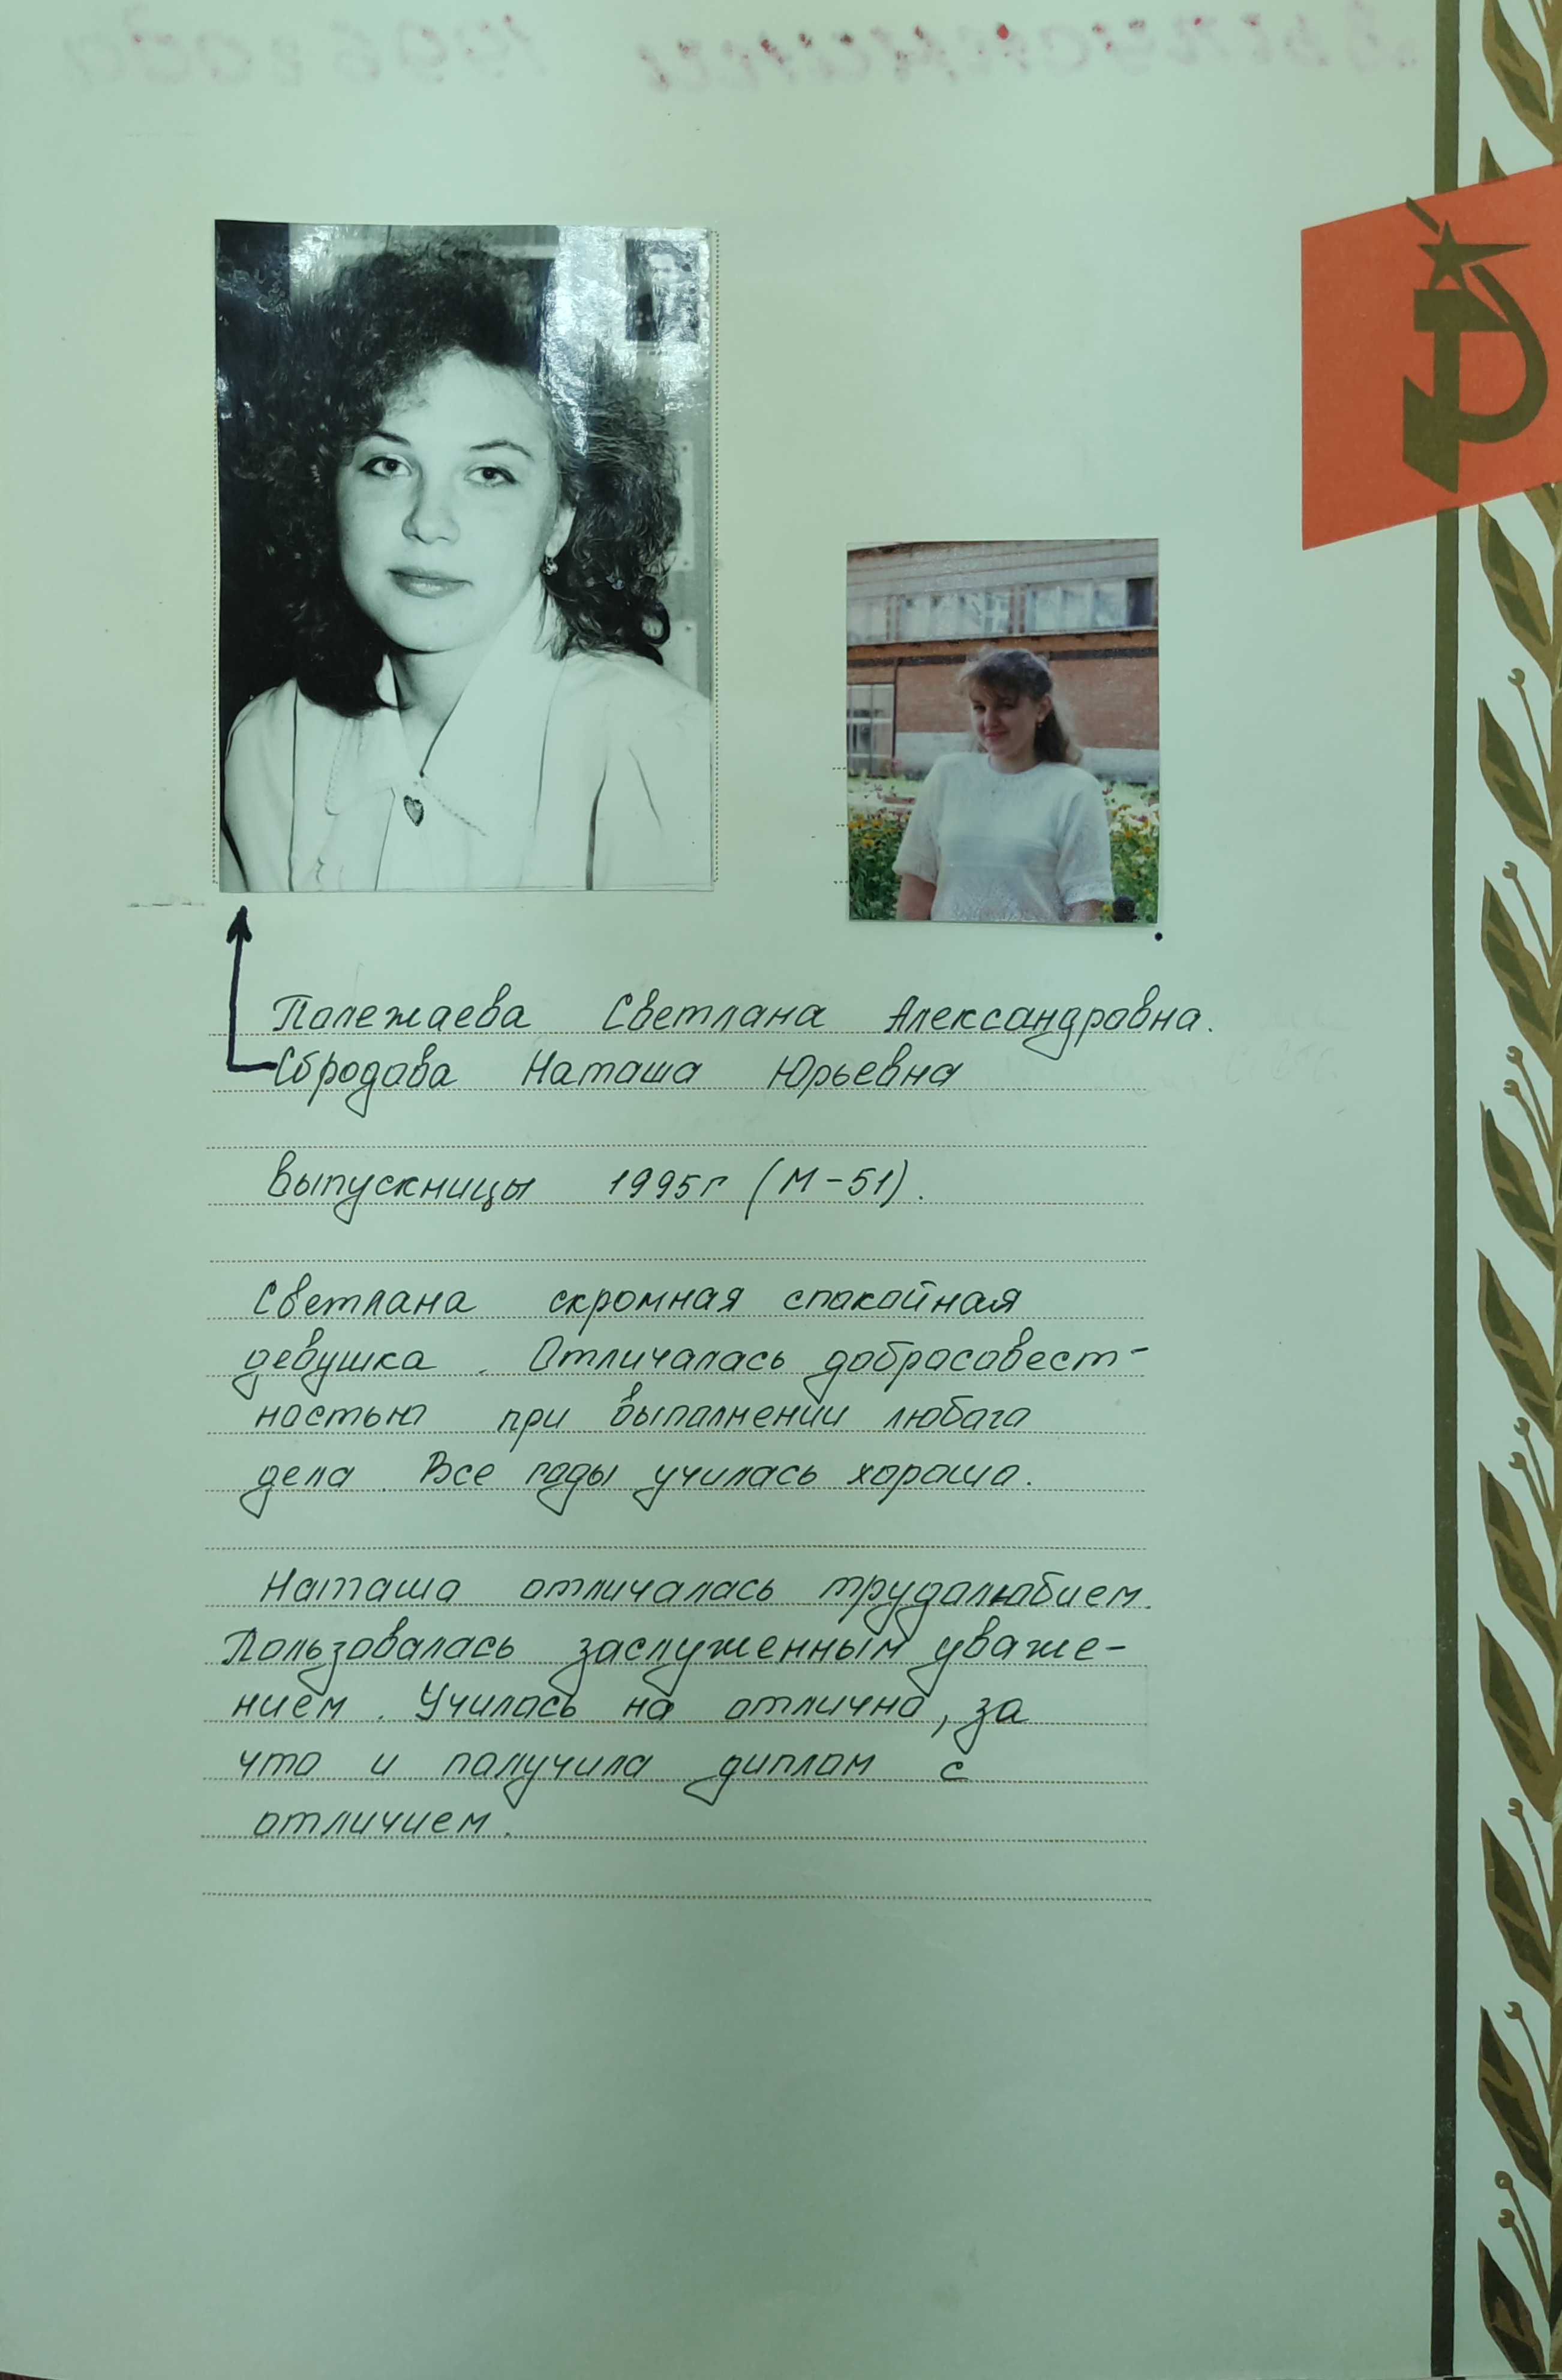 Полежаева Светлана Александровна.
Сбродова Наташа Юрьевна
выпускницы 1995г (М-51).
Светлана скромная спокойная
девушка. Отличалась добросовест-
ностью при выполнении любого
дела. Все годы училась хорошо.
Наташа отличалась трудолюбием.
Пользовалась заслуженным уваже-
нием. Училась на отлично, за
что и получила диплом с
отличием.